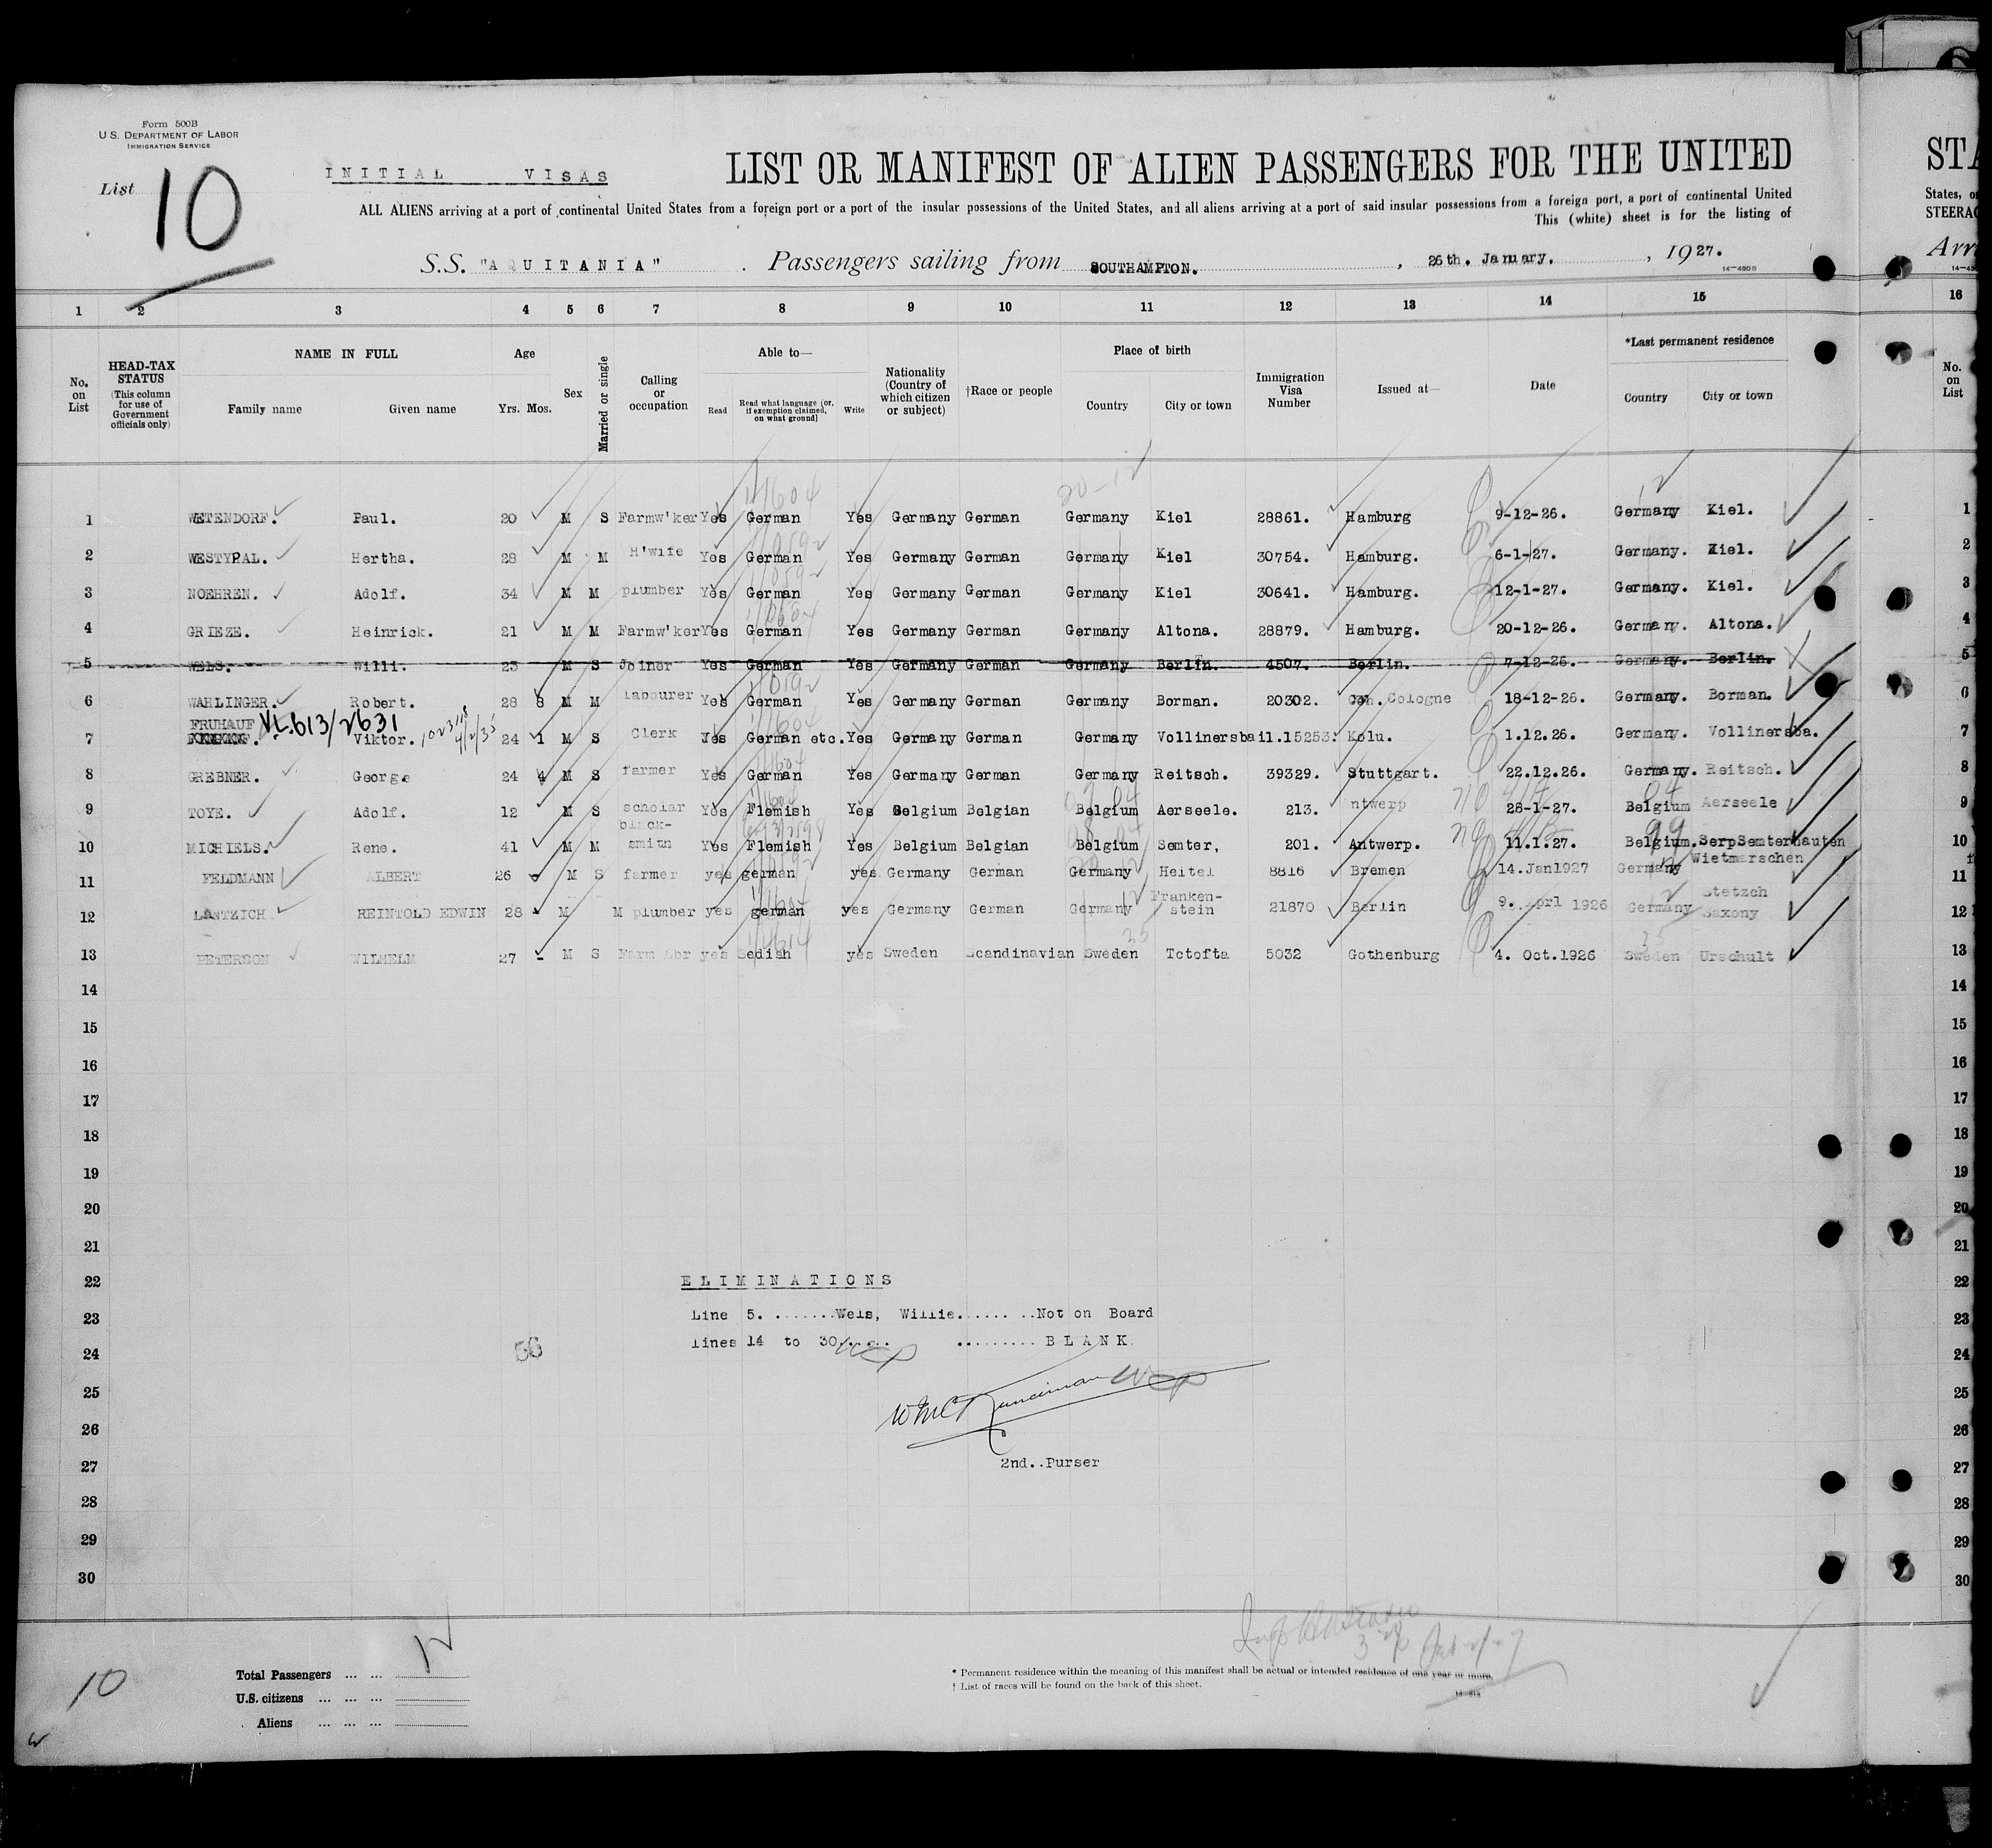 Form 500B
U.S. DEPARTMENT OF LABOR
IMMIGRATION SERVICE
List 10
INITIAL VISAS
LIST OR MANIFEST OF ALIEN PASSENGERS FOR THE UNITED
ALL ALIENS arriving at a port of continental United States from a foreign port or a port of the insular possessions of the United States, and all aliens arriving at a port of said insular possessions from a foreign port, a port of continental United
This (white) sheet is for the listing of
S.S. "AQUITANIA" . Passengers sailing from SOUTHAMPTON. , 26th. January. , 1927.
14-430 B
STA
States, o
STEERAG
Arr
1 2 3 4 5 6 7 8 9 10 11 12 13 14 15 16
No. on List
HEAD-TAX STATUS (This column for use of Government officials only)
NAME IN FULL
Family name Given name
Age
Yrs. Mos.
Sex
Married or single
Calling or occupation
Able to—
Read
Read what language [or, if exemption claimed, on what ground]
Write
Nationality (Country of which citizen or subject)
†Race or people
Place of birth
Country City or town
Immigration Visa Number
Issued at—
Date
*Last permanent residence
Country City or town
No. on List
20-12
1 WETENDORF. Paul. 20 M S Farmw'ker Yes German Yes Germany German Germany Kiel 28861. Hamburg 9-12-26. Germany Kiel. 1
2 WESTYPAL. Hertha. 28 M M H'wife Yes German Yes Germany German Germany Kiel 30754. Hamburg. 6-1-27. Germany. Kiel. 2
3 NOEHREN. Adolf. 34 M M plumber Yes German Yes Germany German Germany Kiel 30641. Hamburg. 12-1-27. Germany. Kiel. 3
4 GRIEZE. Heinrick. 21 M M Farmw'ker Yes German Yes Germany German Germany Altona. 28879. Hamburg. 20-12-26. Germany. Altona. 4
5 WELS. Willi. 23 M S Joiner Yes German Yes Germany German Germany Berlin. 4507. Berlin. 7-12-26. Germany. Berlin. 5
6 WAHLINGER. Robert. 28 8 M M labourer Yes German Yes Germany German Germany Borman. 20302. Cologne 18-12-26. Germany. Borman. 6
FRUHAUF VL.613/2631
7 Viktor. 24 1 M S Clerk Yes German etc. Yes Germany German Germany Vollinersbail.15253. Kolu. 1.12.26. Germany. Vollinersba. 7
8 GREBNER. George 24 4 M S farmer Yes German Yes Germany German Germany Reitsch. 39329. Stuttgart. 22.12.26. Germany. Reitsch. 8
9 TOYE. Adolf. 12 M S scholar Yes Flemish Yes Belgium Belgian Belgium Aerseele. 213. Antwerp 28-1-27. Belgium Aerseele 9
10 MICHIELS. Rene. 41 M M black-smith Yes Flemish Yes Belgium Belgian Belgium Semter, 201. Antwerp. 11.1.27. Belgium. SerpSemterhauten 10
11 FELDMANN ALBERT 26 M S farmer yes german yes Germany German Germany Heitel 8816 Bremen 14.Jan1927 Germany Wietmarschen 11
12 LANTZICH REINTOLD EDWIN 28 M M plumber yes german yes Germany German Germany Franken-stein 21870 Berlin 9. Aprl 1926 Germany Stetzch Saxony 12
13 PETERSON WILHELM 27 M S Farm lbr yes Sedish yes Sweden Scandinavian Sweden Totofta 5032 Gothenburg 4. Oct.1926 Sweden Urschult 13
14 14
15 15
16 16
17 17
18 18
19 19
20 20
21 21
22 ELIMINATIONS 22
23 Line 5. .......Wels, Willie...... ..Not on Board 23
24 lines 14 to 30..... ......... BLANK. 24
56
25 25
26 26
27 2nd..Purser 27
28 28
29 29
30 30
10
Total Passengers ... ... 12
U.S. citizens ... ... ...
Aliens ... ... ...
* Permanent residence within the meaning of this manifest shall be actual or intended residence of one year or more.
† List of races will be found on the back of this sheet.